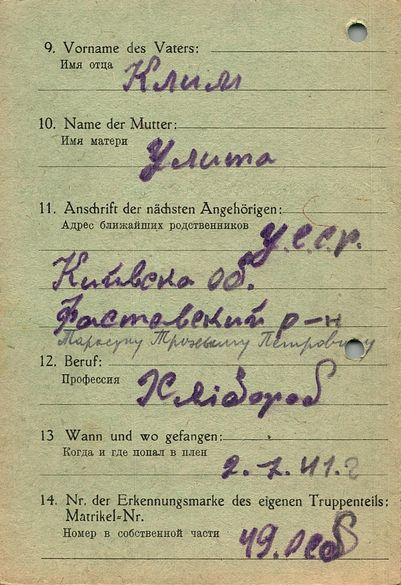 9. Vorname des Vaters:
Имя отца
Клим
10. Name der Mutter:
Имя матери
Улита
11. Anschrift der nächsten Angehörigen:
Адрес ближайших родственников
У.С.С.Р.
Київска об.
Фастовский р-н
Петровичу
12. Beruf:
Профессия
Хлібороб
13 Wann und wo gefangen:
Когда и где попал в плен
2.7.41.г
14. Nr. der Erkennungsmarke des eigenen Truppenteils:
Matrikel-Nr.
Номер в собственной части
49.